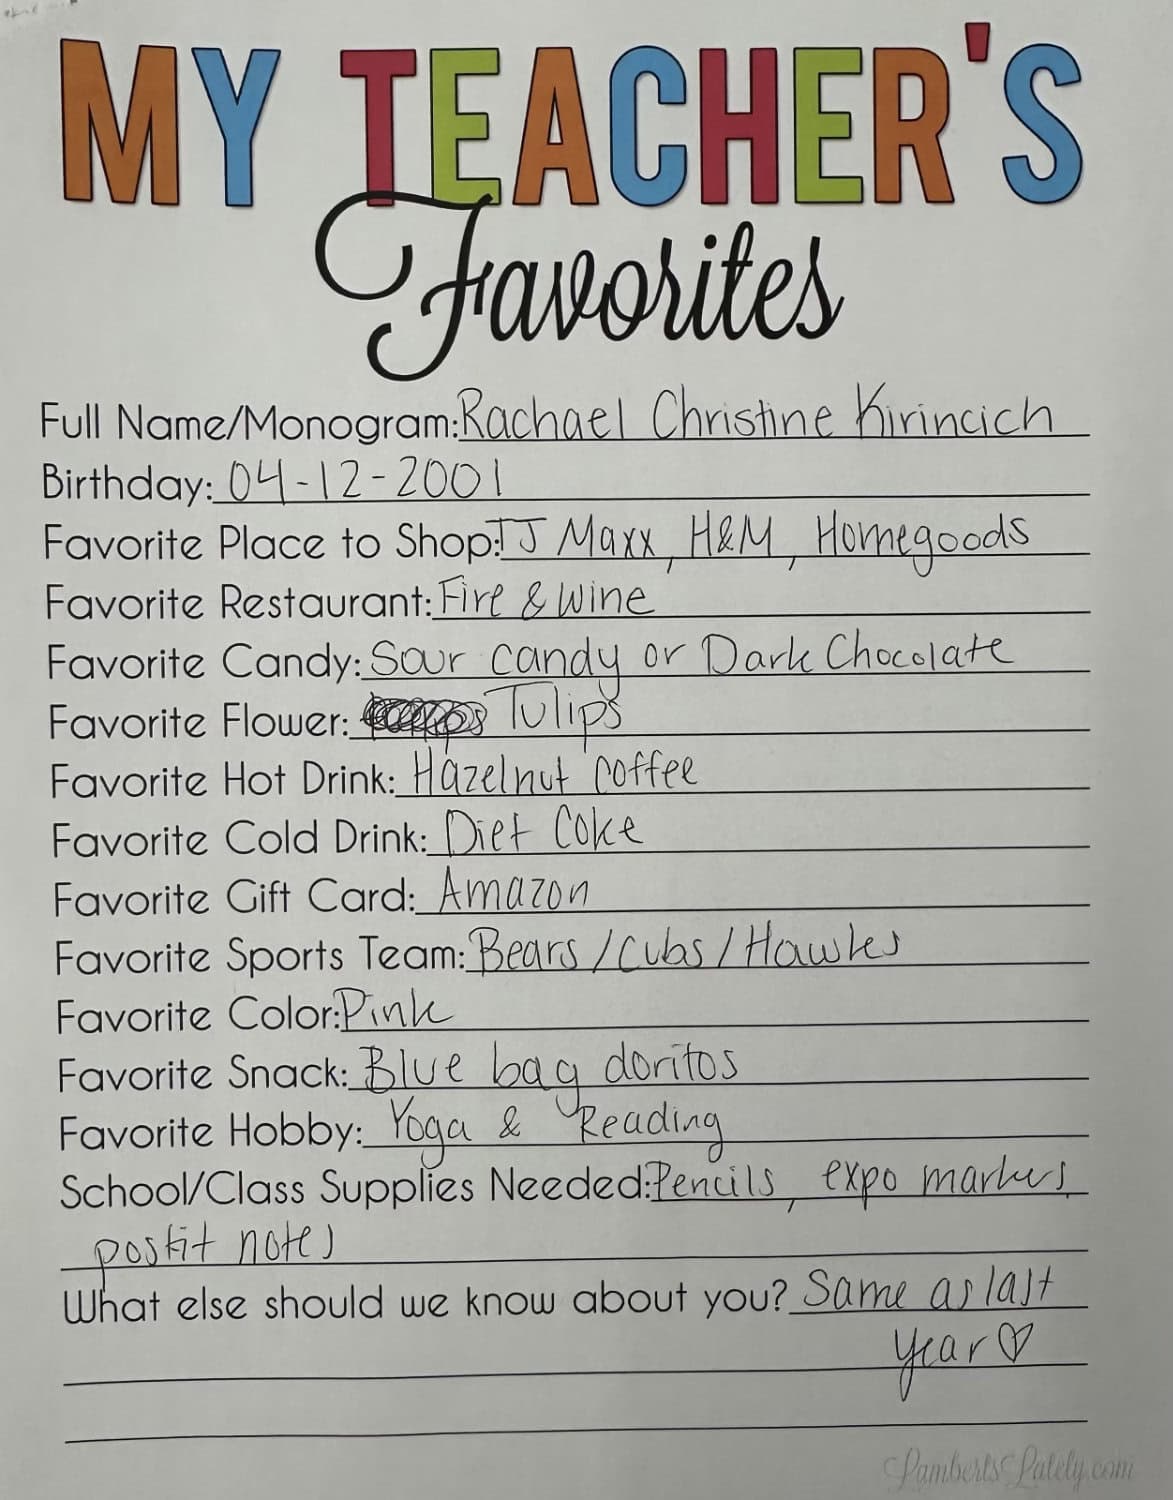 MY TEACHER'S
Favorites
Full Name/Monogram: Rachael Christine Kirincich
Birthday: 04-12-2001
Favorite Place to Shop: TJ Maxx, H&M, Homegoods
Favorite Restaurant: Fire & Wine
Favorite Candy: Sour candy or Dark Chocolate
Favorite Flower: Tulips
Favorite Hot Drink: Hazelnut coffee
Favorite Cold Drink: Diet Coke
Favorite Gift Card: Amazon
Favorite Sports Team: Bears/Cubs/Hawks
Favorite Color: Pink
Favorite Snack: Blue bag doritos
Favorite Hobby: Yoga & Reading
School/Class Supplies Needed: Pencils, expo markers,
postit notes
What else should we know about you? Same as last
year ♡
LambertsLately.com